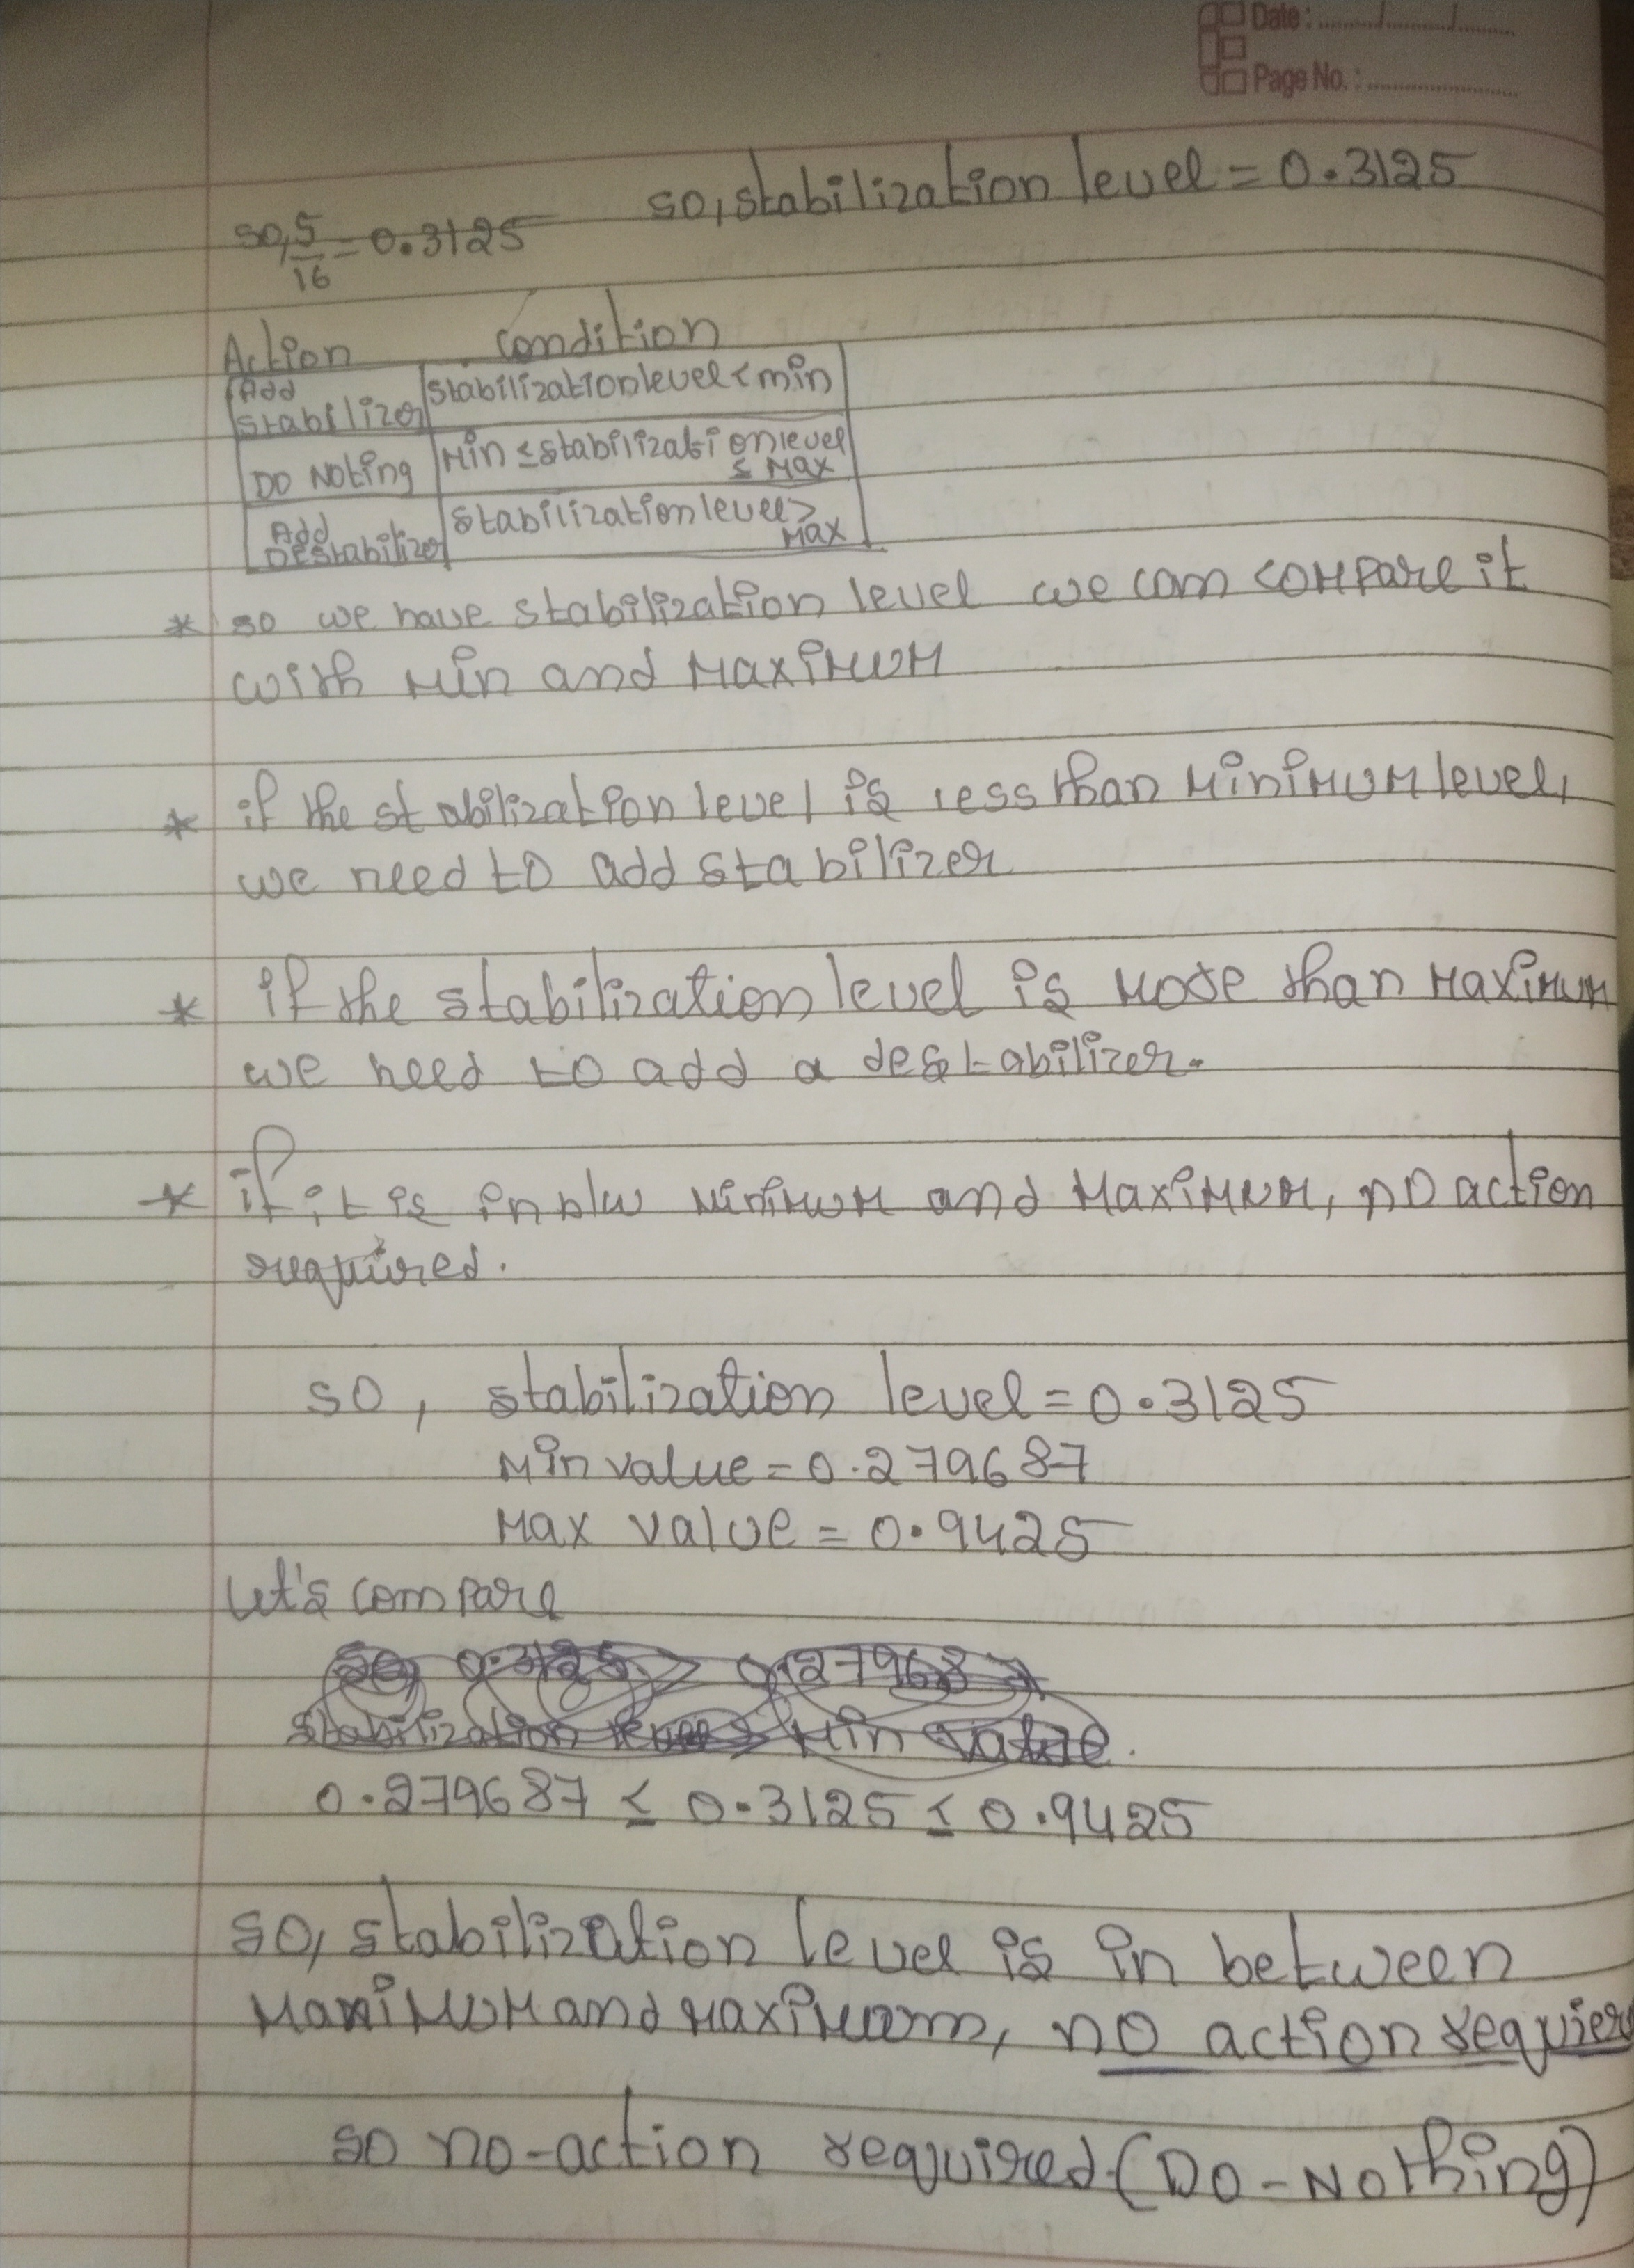 Date : ......../......../........
Page No. : ........................
so, stabilization level = 0.3125
so, 5/16 = 0.3125
Action condition
Add stabilizationlevel < min
stabilizer
DO Noting Min ≤ stabilization level
≤ Max
Add stabilization level >
Destabilizer Max
* so we have stabilization level we can compare it
with Min and Maximum
* if the stabilization level is less than Minimum level,
we need to add stabilizer
* if the stabilization level is more than Maximum
we need to add a destabilizer.
* if it is in b/w Minimum and Maximum, no action
required.
so, stabilization level = 0.3125
Min value = 0.279687
Max value = 0.9425
let's compare
so, 0.3125 > 0.279687
stabilization level > Min value.
0.279687 ≤ 0.3125 ≤ 0.9425
so, stabilization level is in between
Manimum and Maximum, no action requier
so no-action required. (Do-Nothing)